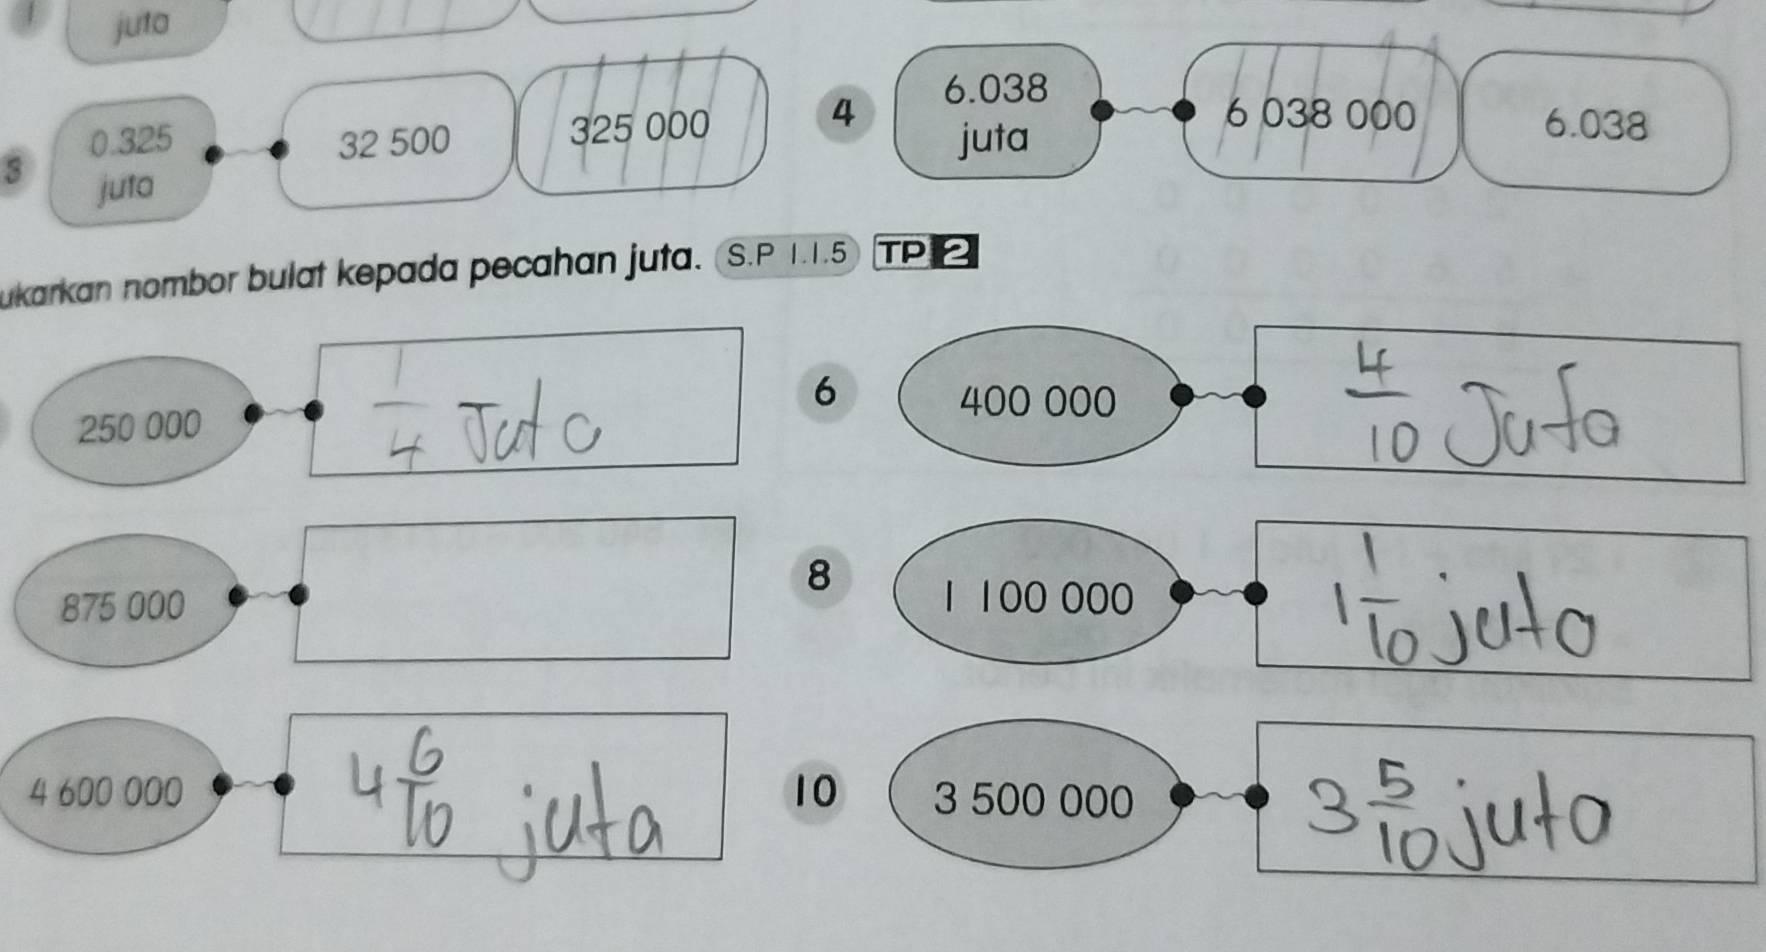 juta
3 0.325 juta 32 500 325 000
4 6.038 juta 6 038 000 6.038
ukarkan nombor bulat kepada pecahan juta. S.P 1.1.5 TP 2
250 000 1/4 Juta
6 400 000 4/10 Juta
875 000
8 1 100 000 1 1/10 juta
4 600 000 4 6/10 juta
10 3 500 000 3 5/10 juta